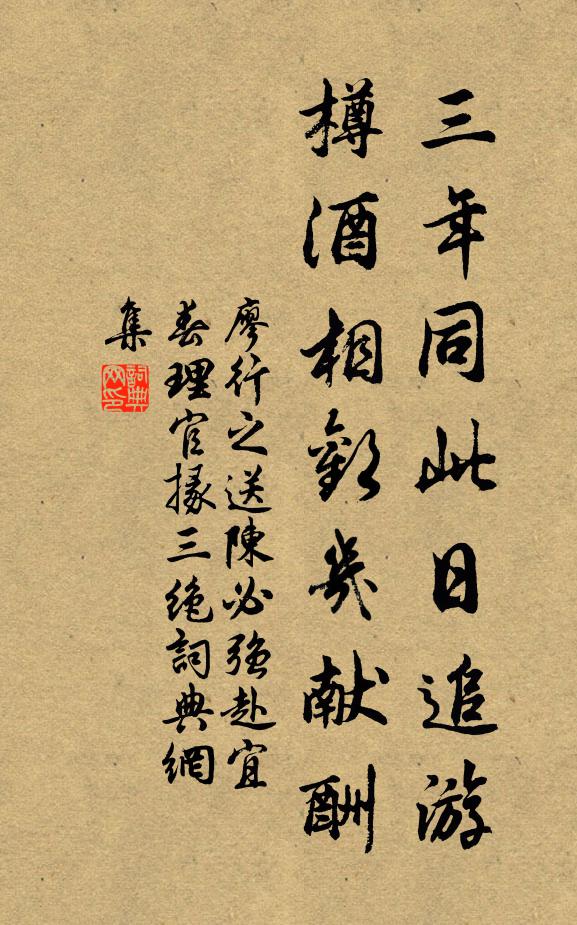 三年同此日追游
樽酒相歡幾献酬
廖行之送陳必强赴宜
春理官掾三絶詞典網
集
詞典
网印